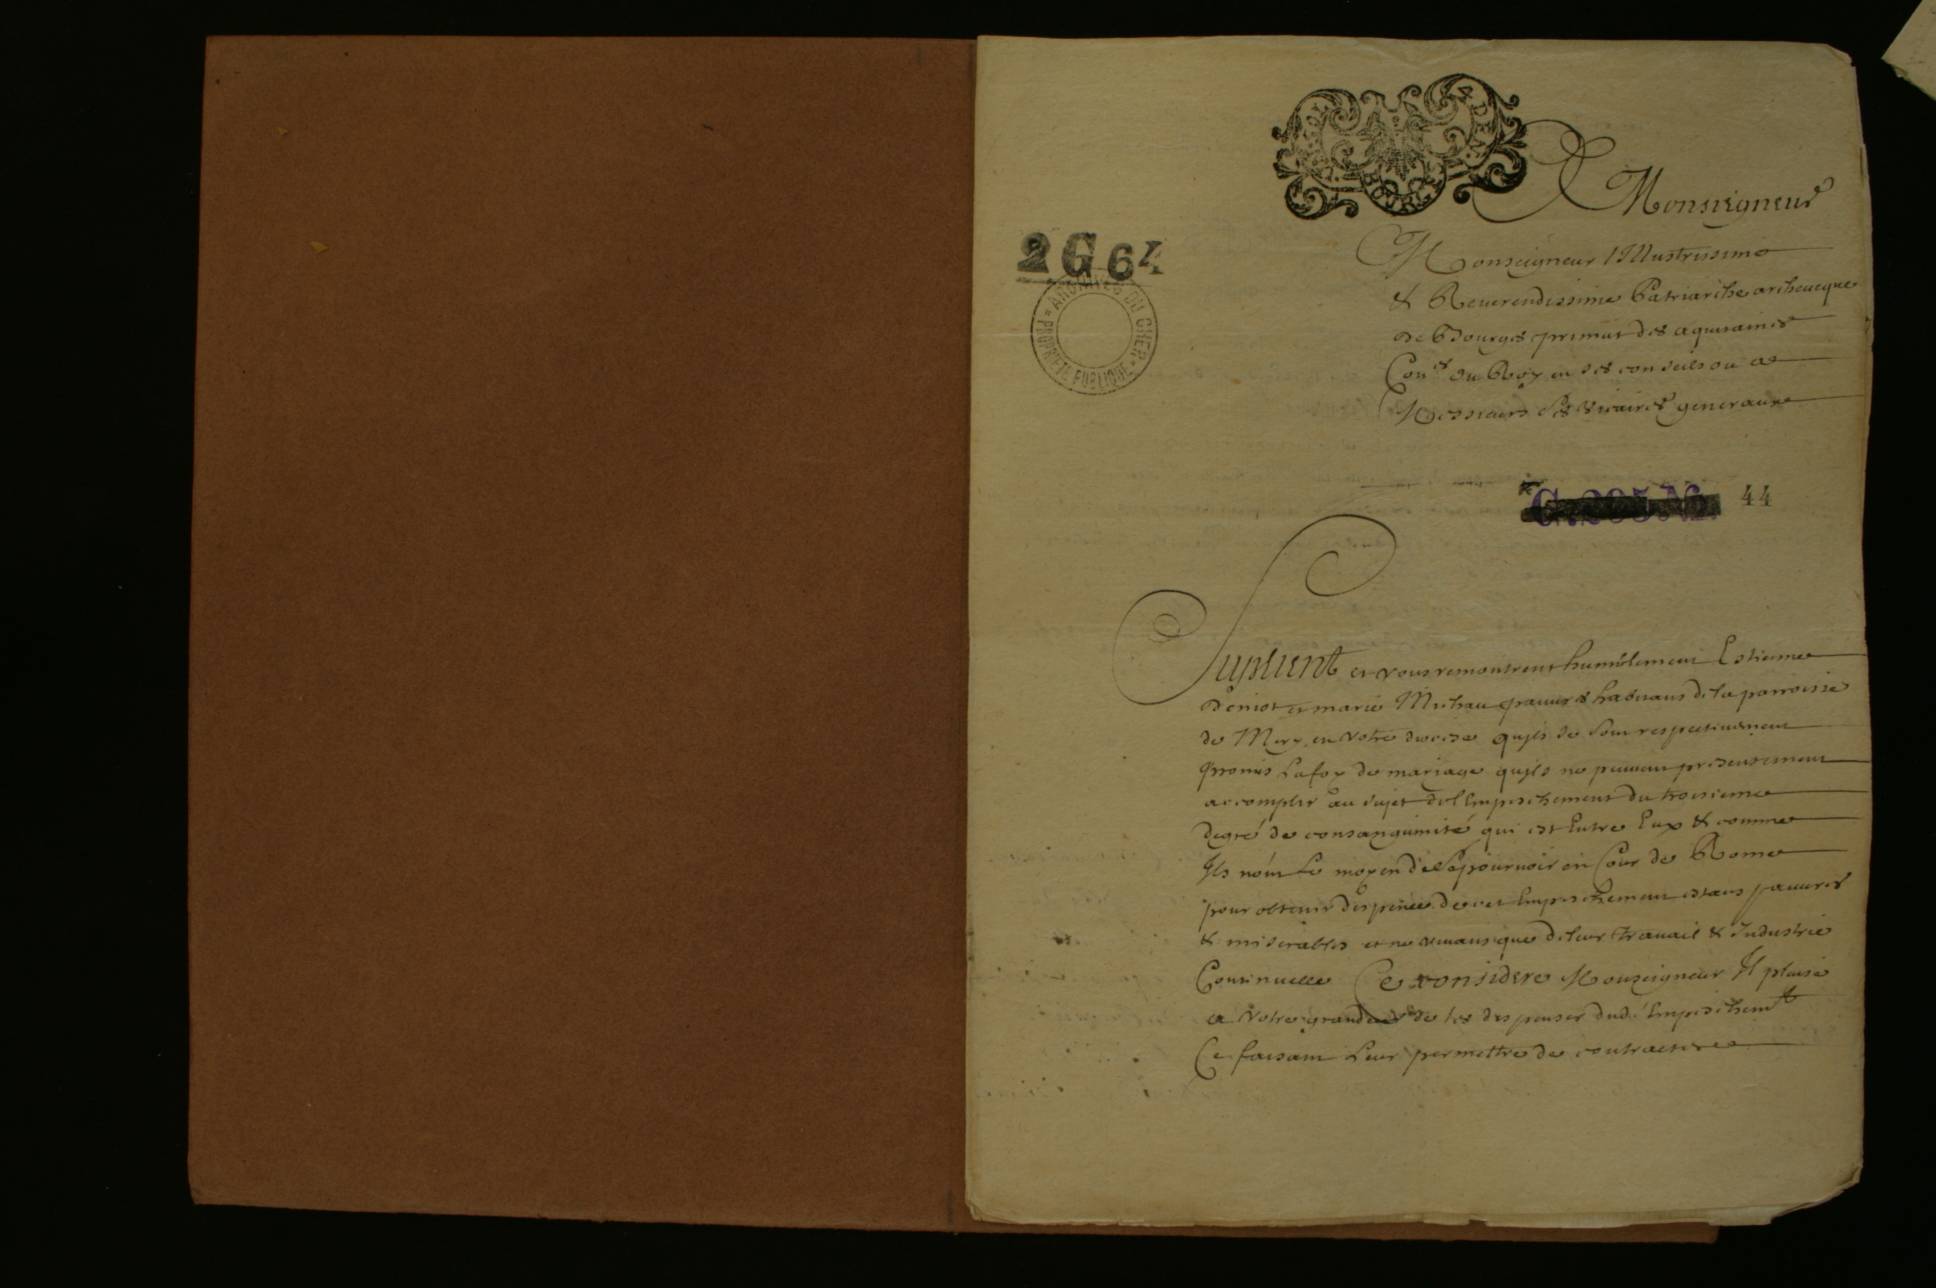 A Monseigneur
Monseigneur Illustrissime
& Reverendissime Patriarche archeuesque
de Bourges primat des aquitaines
Con.er du Roy en ses conseils ou a
Messieurs Ses vicaires generaux
2 G 64
ARCHIVES DU CHER
PROPRIETE PUBLIQUE
BOURGES
C. 295 No. 44
Suplient et vous remontrent humblement Estienne
et marie Micheau pauures habitans de la parroisse
de Mery en votre diocese qujls se sont respectiuement
promis la foy de mariage qujls ne peuuent presentement
accomplir au sujet de l'Empeschement du troisieme
degré de consanguinité qui est Entre Eux & comme
Ils n'ont Le moyen de se pouruoir en Cour de Rome
pour obtenir dispense de cet Empeschement estans pauures
& miserables et ne viuans que de leur trauail & Industrie
Continuelle Ce consideré Monseigneur Il plaise
a Votre grandeur de les dispenser dud. Empeschem.t
Ce faisant Leur permettre de contracter